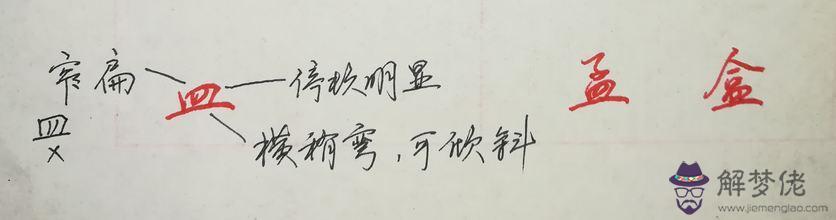 窄扁 皿 停顿明显 孟 盒
皿
×
横稍弯，可倾斜
解梦佬
www.jiemenglao.com